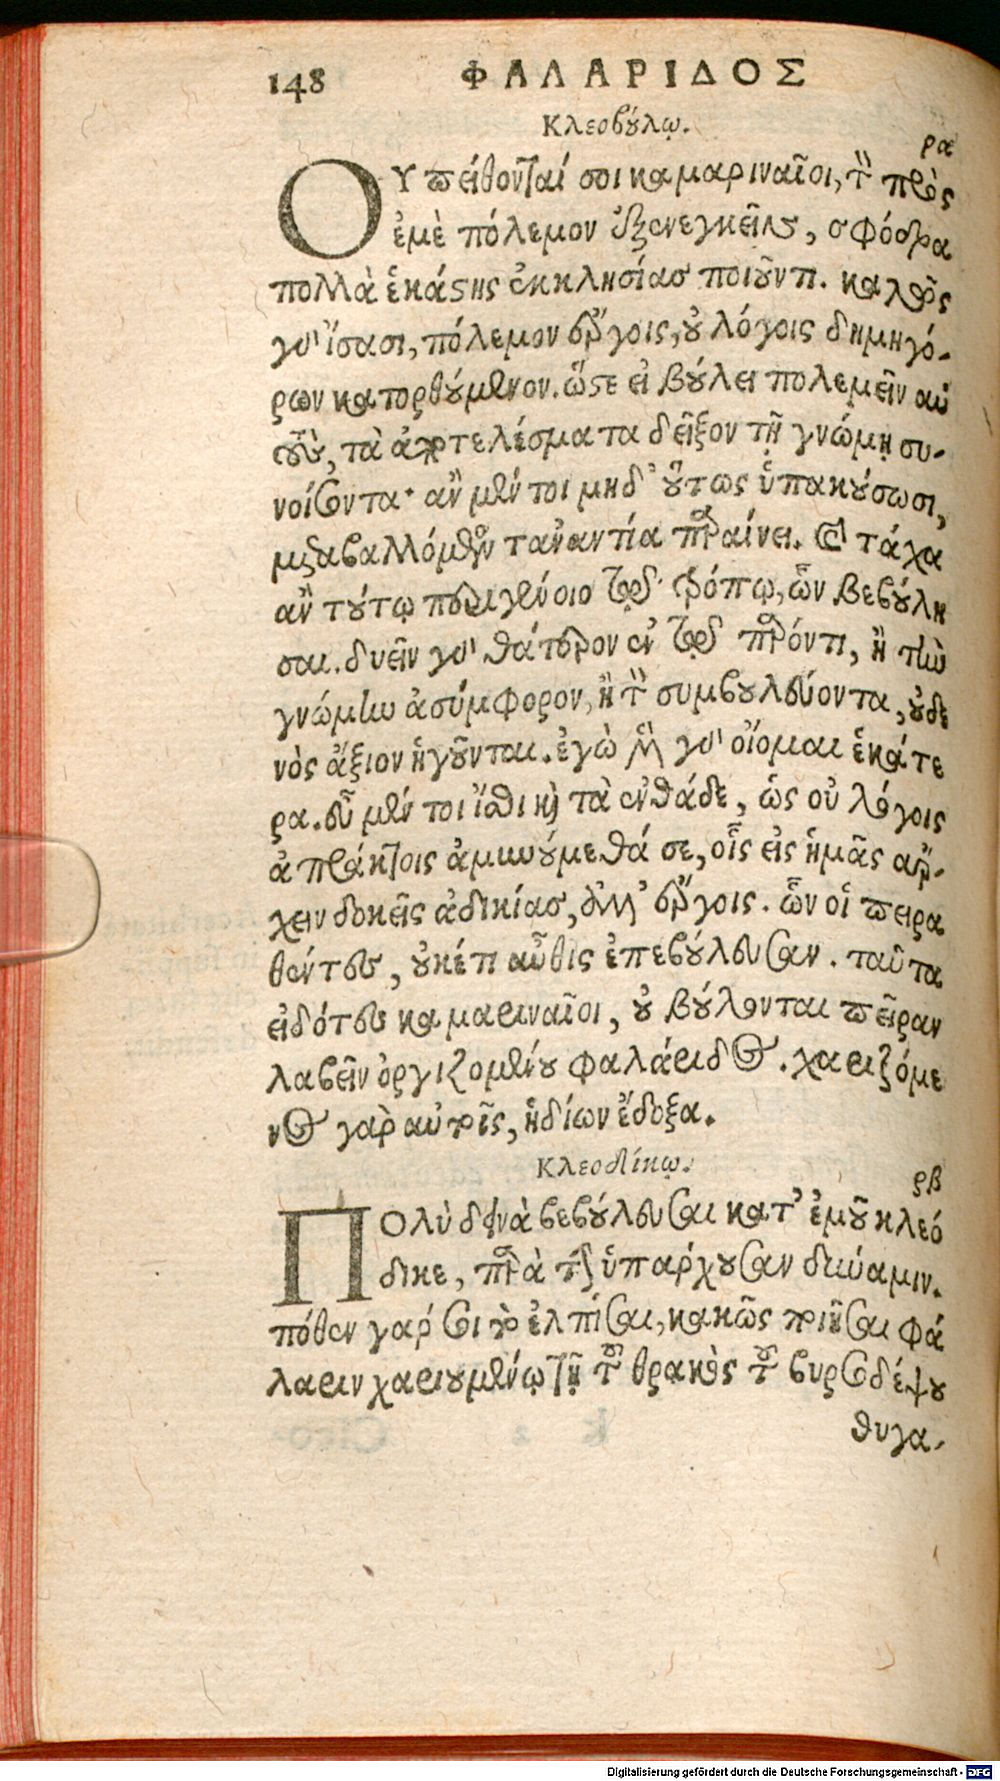 148 ΦΑΛΑΡΙΔΟΣ
Κλεοβούλῳ.
ρα
ΟΥ πείθονταί σοι καμαριναῖοι, τὸν πρὸς
ἐμὲ πόλεμον ἐξενεγκεῖν, σφόδρα
πολλὰ ἑκάστης ἐκκλησίας ποιοῦντι. καλῶς
γὰρ ἴσασι, πόλεμον ἔργοις, οὐ λόγοις δημηγό-
ρων κατορθούμενον. ὥστε εἰ βούλει πολεμεῖν αὐ
τοὺς, τὰ ἀποτελέσματα δεῖξον τῇ γνώμῃ συ-
νοίσοντα· ἂν μέντοι μηδ᾽ οὕτως ὑπακούσωσι,
μεταβαλλόμενος τἀναντία παραίνει. καὶ τάχα
ἂν τούτῳ περιγένοιο τῷ τρόπῳ, ὧν βεβούλη
σαι. δυεῖν γὰρ θάτερον ἐν τῷ παρόντι, ἢ τὴν
γνώμην ἀσύμφορον, ἢ τὸν συμβουλεύοντα, οὐδε
νὸς ἄξιον ἡγοῦνται. ἐγὼ μὲν γὰρ οἴομαι ἑκάτε
ρα. σὺ μέντοι ἴσθι καὶ τὰ ἐνθάδε, ὡς οὐ λόγοις
ἀπράκτοις ἀμυνούμεθά σε, οἷς εἰς ἡμᾶς ἄρ-
χειν δοκεῖς ἀδικίας, ἀλλ᾽ ἔργοις. ὧν οἱ πειρα
θέντες, οὐκέτι αὖθις ἐπεβούλευσαν. ταῦτα
εἰδότες καμαριναῖοι, οὐ βούλονται πεῖραν
λαβεῖν ὀργιζομένου φαλάριδος. χαριζόμε
νος γὰρ αὐτοῖς, ἡδίων ἔδοξα.
Κλεοδίκῳ.
ρβ
ΠΟλὺ δεινὰ βεβούλευσαι κατ᾽ ἐμοῦ κλεό
δικε, παρὰ τὴν ὑπάρχουσαν δύναμιν.
πόθεν γάρ σοι τὸ ἐλπίσαι, κακῶς ποιῆσαι φά
λαριν χαρισμένῳ τῇ τοῦ θρᾳκὸς τοῦ βυρσοδέψου
θυγα-
Digitalisierung gefördert durch die Deutsche Forschungsgemeinschaft - DFG